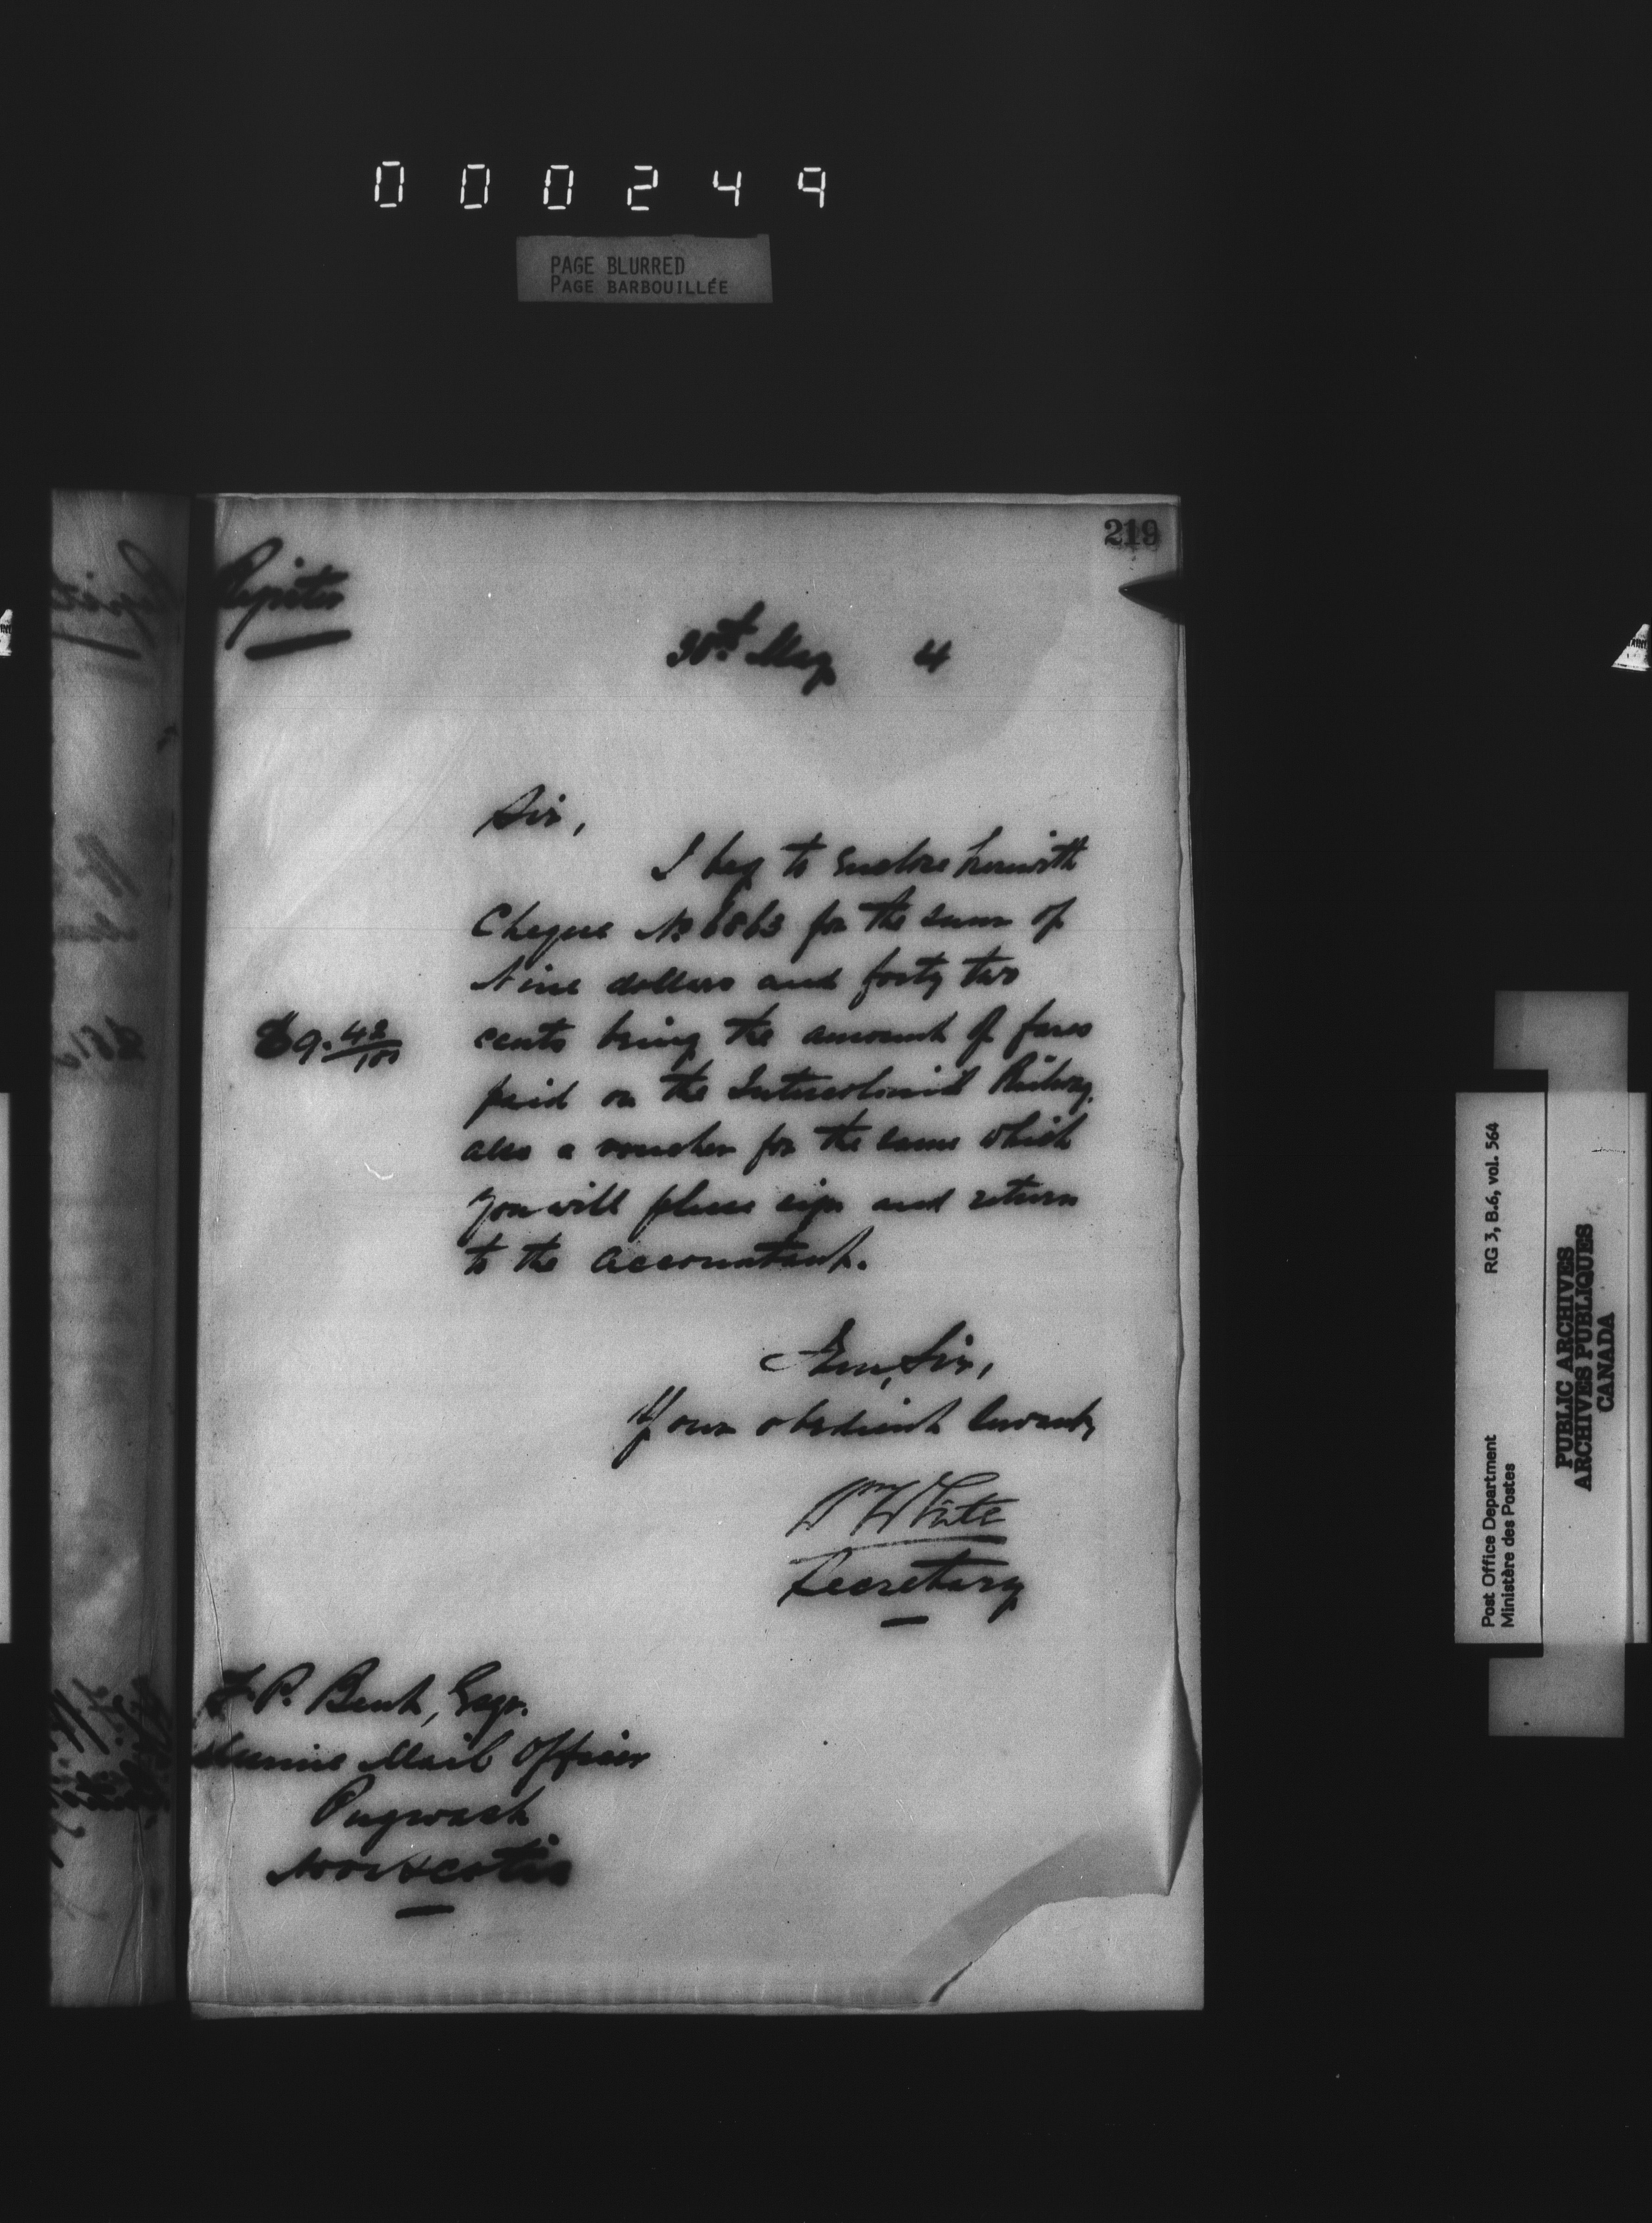 000249
PAGE BLURRED
PAGE BARBOUILLÉE
219
Register
30th May 4
Sir,
I beg to enclose herewith
Cheque No 6863 for the sum of
Nine dollars and forty two
$9.42/100
cents being the amount of fares
paid on the Intercolonial Railway.
also a voucher for the same which
you will please sign and return
to the Accountant.
I am, Sir,
Your obedient Servant,
Wm White
Secretary
F. P. Bent, Esqr.
Marine Mail Officer
Pugwash
Nova Scotia
Post Office Department RG 3, B.6, vol. 564
Ministère des Postes
PUBLIC ARCHIVES
ARCHIVES PUBLIQUES
CANADA